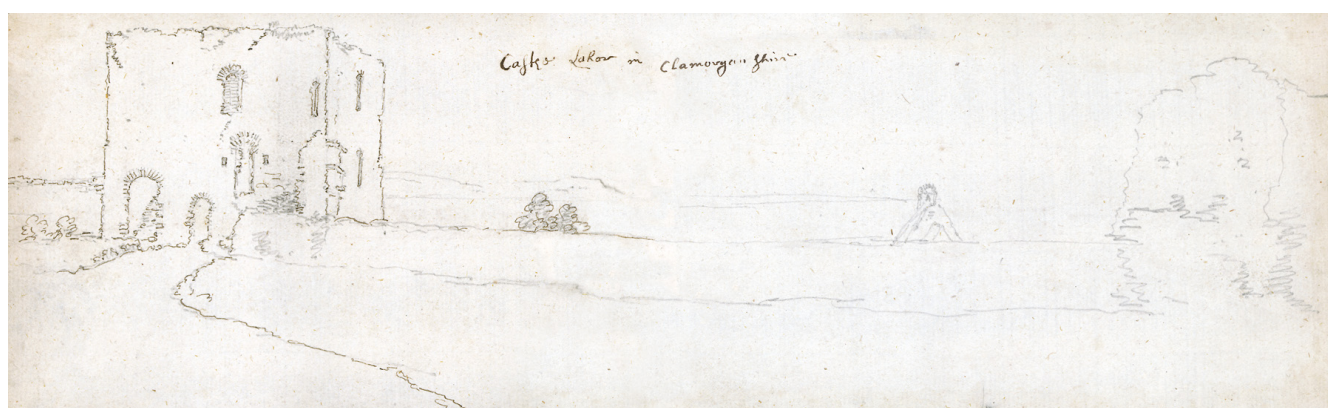 Castle Lakor in Clamorgan Shire